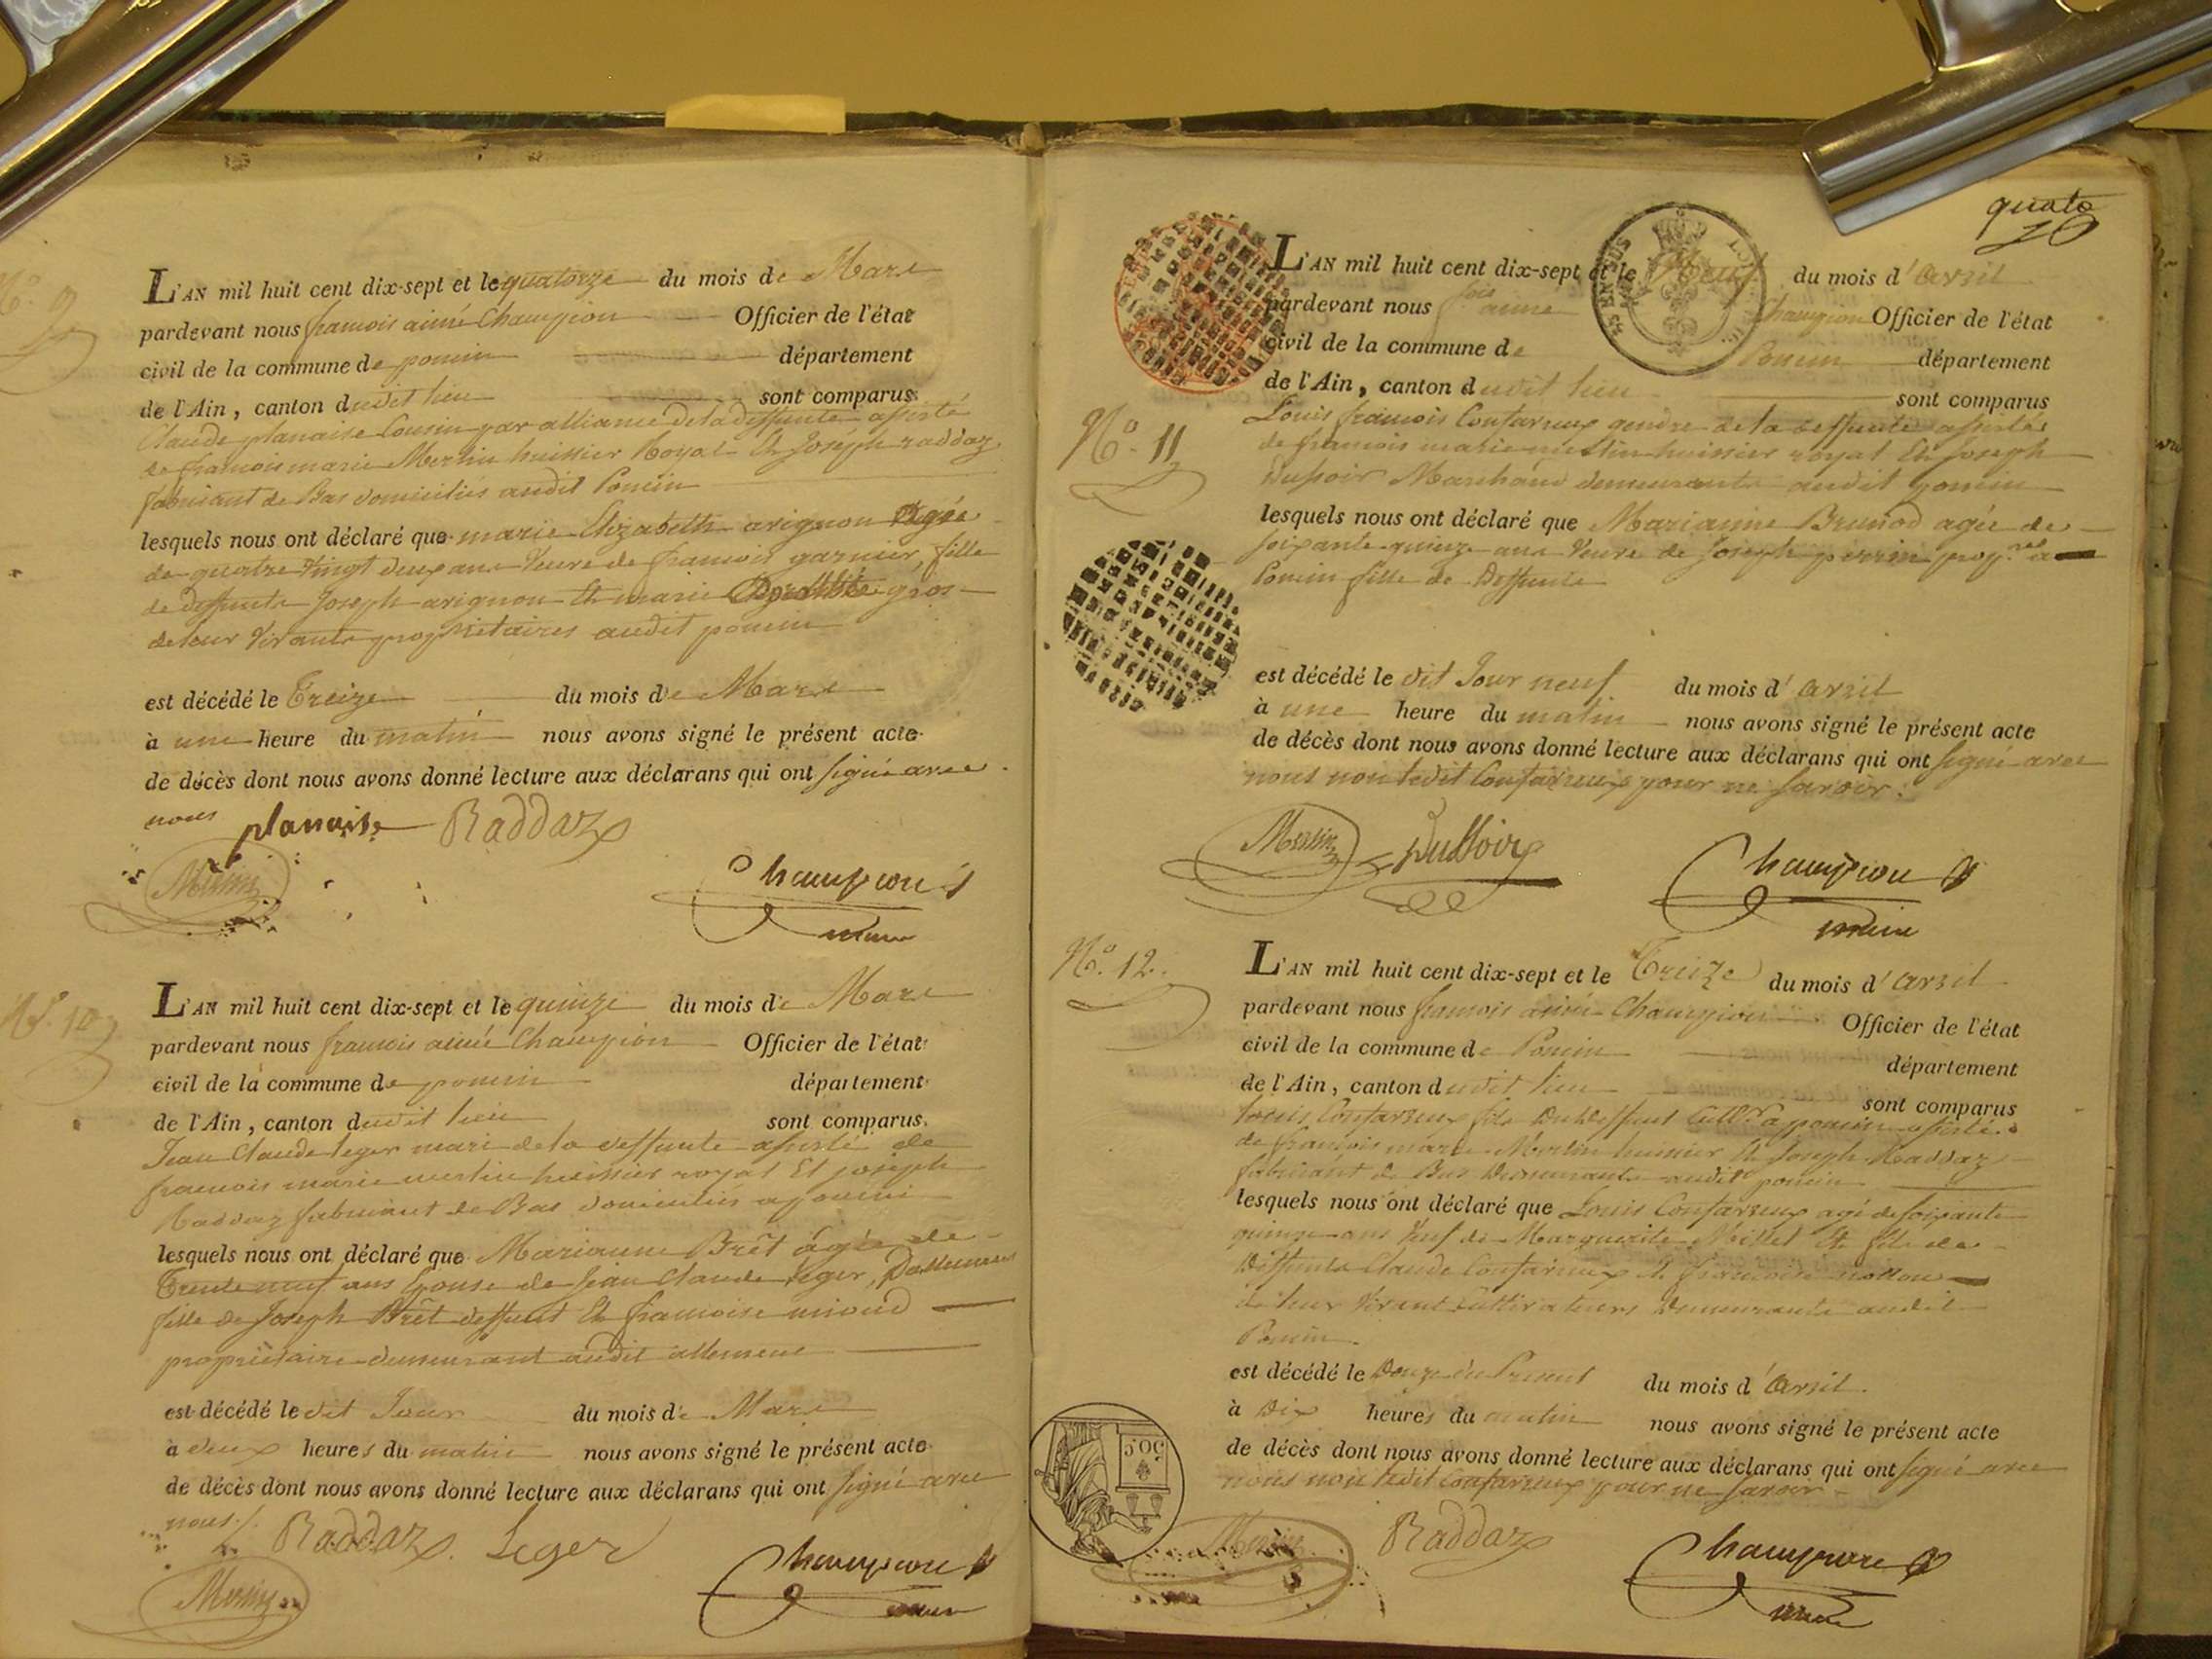 N.º 9
L'AN mil huit cent dix-sept et le quatorze du mois de Mars
pardevant nous francois aimé Champion Officier de l'état
civil de la commune de poncin département
de l'Ain, canton dudit lieu sont comparus
Claude planaise Cousin par alliance de la deffunte assisté
de francois marie Merlin huissier Royal Et Joseph raddaz
fabricant de Bas domiciliés audit Poncin
lesquels nous ont déclaré que marie Elizabeth arignon Agée
de quatre vingt deux ans Veuve de francois garnier, fille
de deffunts Joseph arignon Et marie gros
de leur Vivants propriétaires audit poncin
est décédé le Treize du mois de Mars
à une heure du matin nous avons signé le présent acte
de décès dont nous avons donné lecture aux déclarans qui ont signé avec
nous planaise Raddaz
Merlin
Champion
maire
N.º 10
L'AN mil huit cent dix-sept et le quinze du mois de Mars
pardevant nous francois aimé Champion Officier de l'état
civil de la commune de poncin département
de l'Ain, canton dudit lieu sont comparus
Jean Claude leger mari de la deffunte assisté de
francois marie merlin huissier royal Et joseph
Raddaz fabricant de Bas domiciliés a poncin
lesquels nous ont déclaré que Marianne Brêt âgée de
Trente neuf ans Epouse de Jean Claude leger, Dallement
fille de Joseph Brêt deffunt Et francoise
propriétaire demeurant audit allement
est décédé le dit Jour du mois de Mars
à deux heures du matin nous avons signé le présent acte
de décès dont nous avons donné lecture aux déclarans qui ont signé avec
nous
Raddaz. Leger
Merlin
Champion
maire
quato
10
L'AN mil huit cent dix-sept et le Neuf du mois d'avril
pardevant nous fcois aimé Champion Officier de l'état
civil de la commune de Poncin département
de l'Ain, canton dudit lieu sont comparus
N.º 11
Louis francois Confavreux gendre de la deffunte assisté
de francois marie merlin huissier royal Et Joseph
Dussoir Marchand demeurants audit poncin
lesquels nous ont déclaré que Marianne Brunod agée de
soixante quinze ans Veuve de Joseph perrin prop.res a
Poncin fille de Deffunts
est décédé le dit Jour neuf du mois d'avril
à une heure du matin nous avons signé le présent acte
de décès dont nous avons donné lecture aux déclarans qui ont signé avec
nous non ledit Confavreux pour ne savoir.
Merlin Dussoir
Champion
maire
N.º 12.
L'AN mil huit cent dix-sept et le Treize du mois d'avril
pardevant nous francois aimé Champion Officier de l'état
civil de la commune de Poncin département
de l'Ain, canton dudit lieu sont comparus
Louis Confavreux fils du deffunt Cult.r a poncin assisté
de francois marie Merlin huissier Et Joseph Raddaz
fabricant de Bas Demeurants audit poncin
lesquels nous ont déclaré que Louis Confavreux agé de soixante
quinze ans Veuf de Marguerite Millet Et fils de
Deffunts Claude Confavreux Et francoise
de leur Vivant Cultivateurs Demeurants audit
Poncin.
est décédé le Douze du Present du mois d'avril.
à Dix heures du matin nous avons signé le présent acte
de décès dont nous avons donné lecture aux déclarans qui ont signé avec
nous non ledit Confavreux pour ne savoir
50c
Merlin Raddaz
Champion
maire